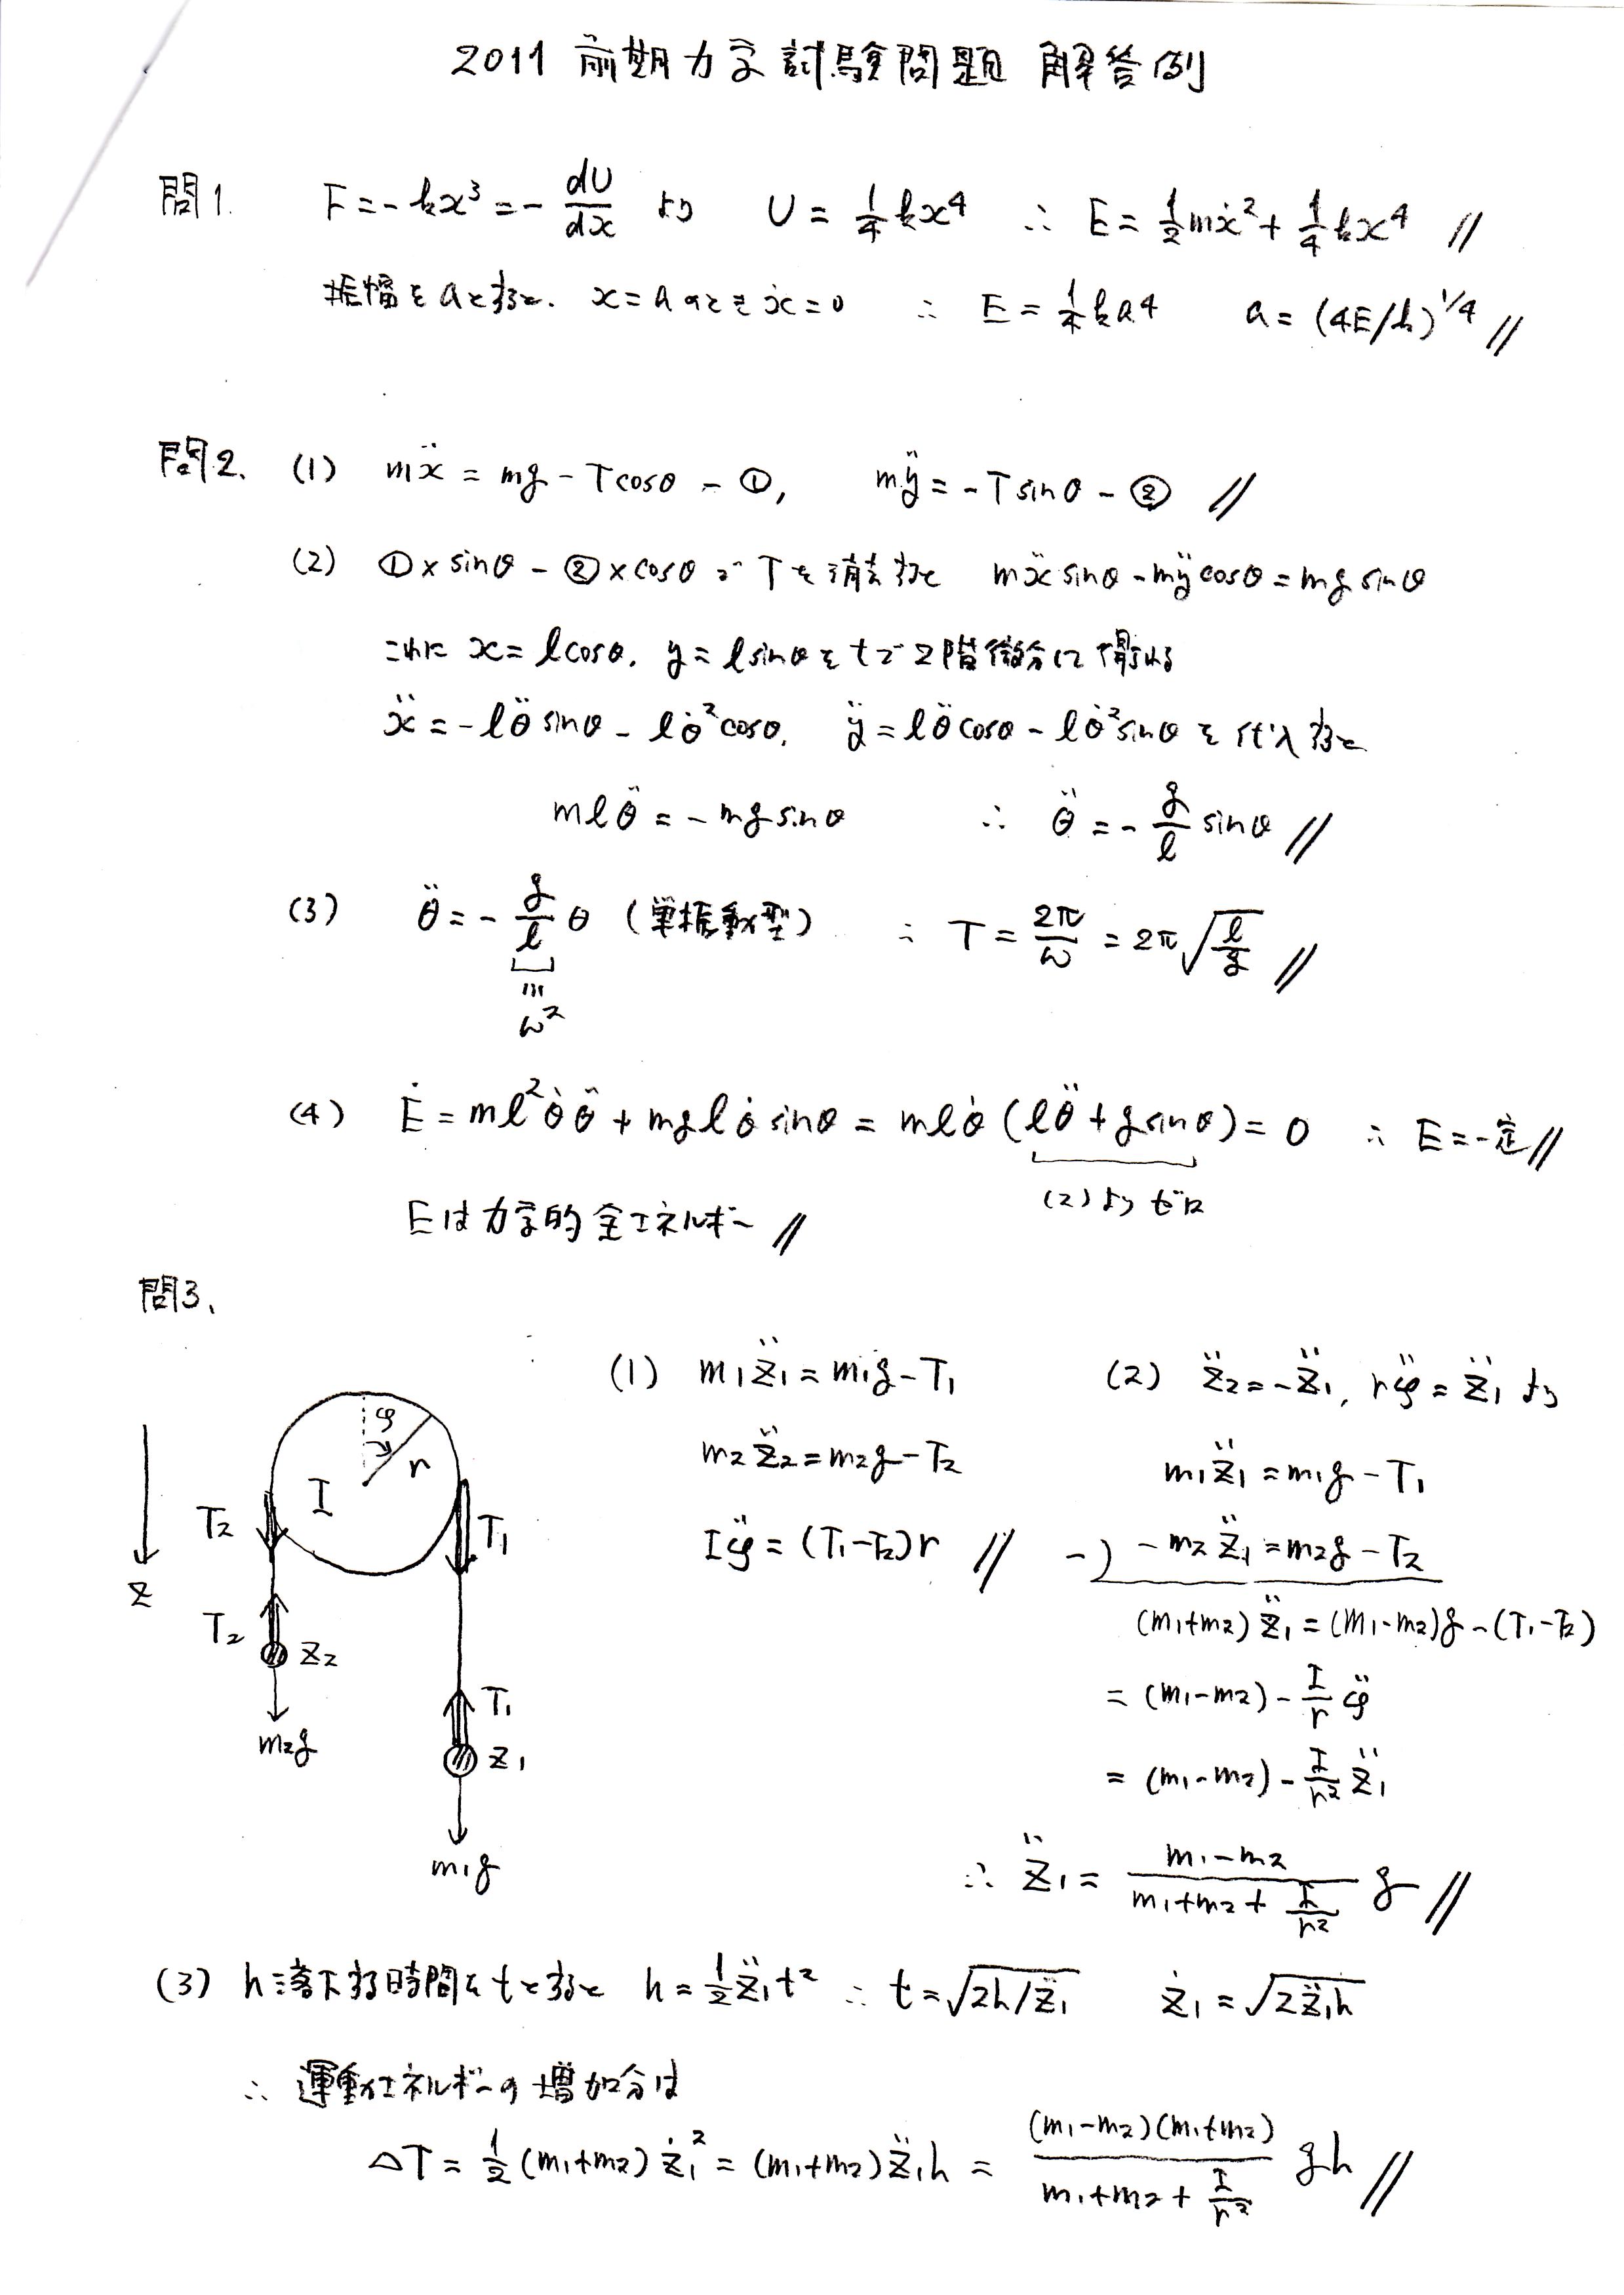 2011 前期力学試験問題 解答例
問1. F = -kx³ = -dU/dx より U = 1/4 kx⁴ ∴ E = 1/2 mẋ² + 1/4 kx⁴ //
振幅を a とすると、 x = a のとき ẋ = 0 ∴ E = 1/4 ka⁴ a = (4E/k)^1/4 //
問2. (1) mẍ = mg - T cosθ - ①, mÿ = -T sinθ - ② //
(2) ① × sinθ - ② × cosθ で T を消去すると mẍ sinθ - mÿ cosθ = mg sinθ
これに x = l cosθ, y = l sinθ を t で 2階微分して得られる
ẍ = -lθ̈ sinθ - lθ̇² cosθ, ÿ = lθ̈ cosθ - lθ̇² sinθ を代入すると
mlθ̈ = -mg sinθ ∴ θ̈ = -g/l sinθ //
(3) θ̈ = -g/l θ (単振動型) ∴ T = 2π/ω = 2π√(l/g) //
≡
ω²
(4) Ė = ml²θ̇θ̈ + mglθ̇ sinθ = mlθ̇ (lθ̈ + g sinθ) = 0 ∴ E = 一定 //
(2) より ゼロ
E は 力学的 全エネルギー //
問3.
φ
r
I
T₂
T₁
z
T₂
z₂
m₂g
T₁
z₁
m₁g
(1) m₁z̈₁ = m₁g - T₁
m₂z̈₂ = m₂g - T₂
Iφ̈ = (T₁ - T₂)r //
(2) z̈₂ = -z̈₁, rφ̈ = z̈₁ より
m₁z̈₁ = m₁g - T₁
-) -m₂z̈₁ = m₂g - T₂
(m₁+m₂) z̈₁ = (m₁-m₂)g - (T₁-T₂)
= (m₁-m₂) - I/r φ̈
= (m₁-m₂) - I/r² z̈₁
∴ z̈₁ = (m₁-m₂)/(m₁+m₂+I/r²) g //
(3) h 落下する時間を t とすると h = 1/2 z̈₁t² ∴ t = √(2h/z̈₁) ż₁ = √(2z̈₁h)
∴ 運動エネルギーの増加分は
ΔT = 1/2 (m₁+m₂) ż₁² = (m₁+m₂) z̈₁h = (m₁-m₂)(m₁+m₂)/(m₁+m₂+I/r²) gh //